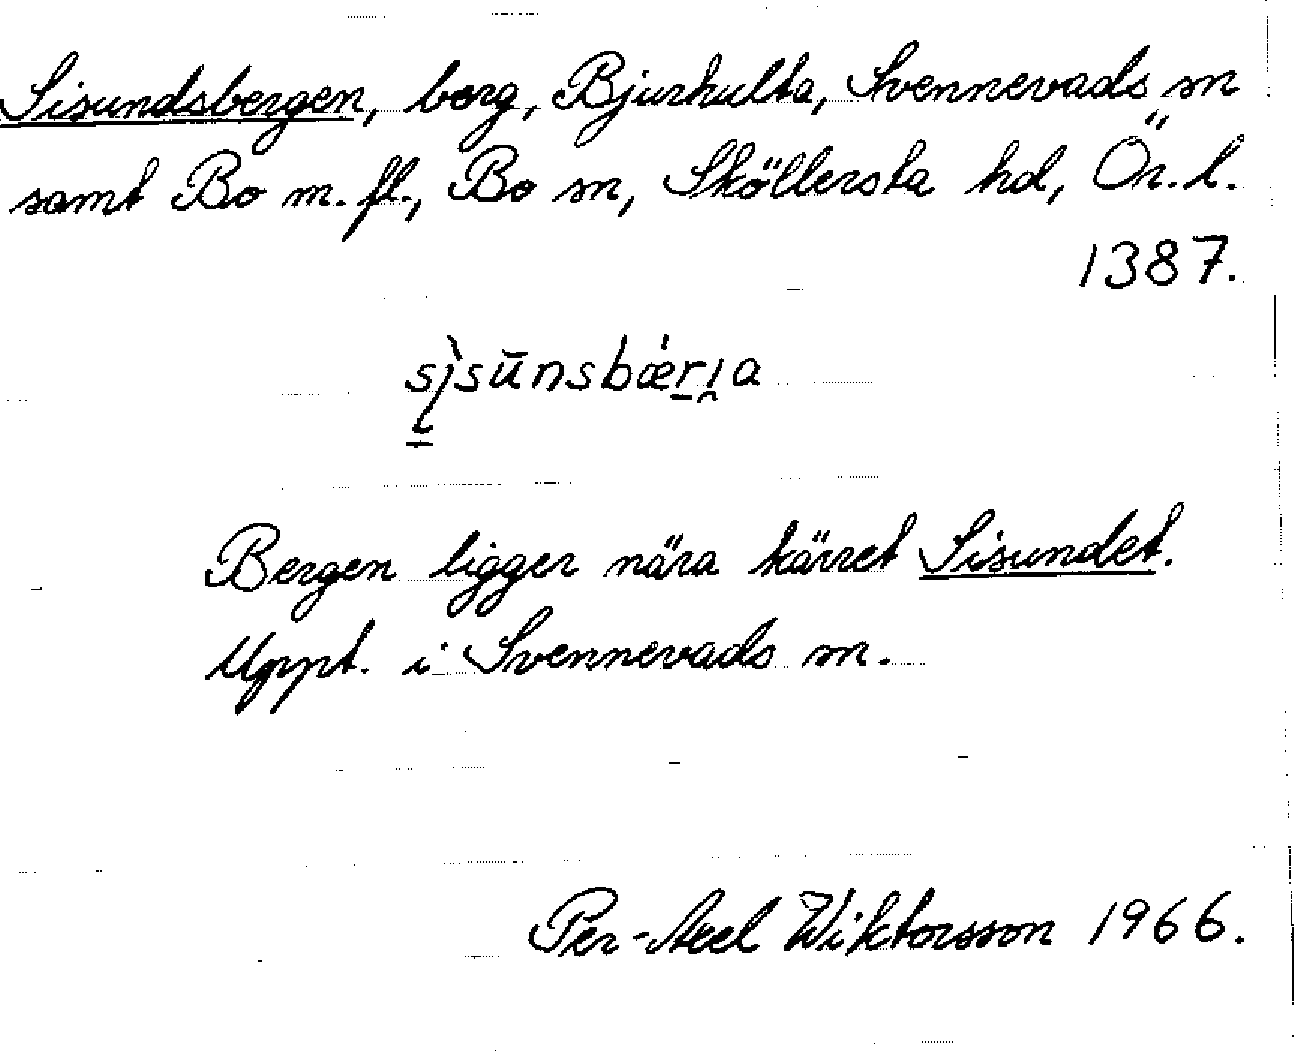 Sisundsbergen, berg, Bjurhulta, Svennevads sn
samt Bo m. fl., Bo sn, Sköllersta hd, Ör. l.
1387.
sìsūnsbǽri̯a
Bergen ligger nära kärret Sisundet.
Uppt. i Svennevads sn.
Per-Axel Wiktorsson 1966.